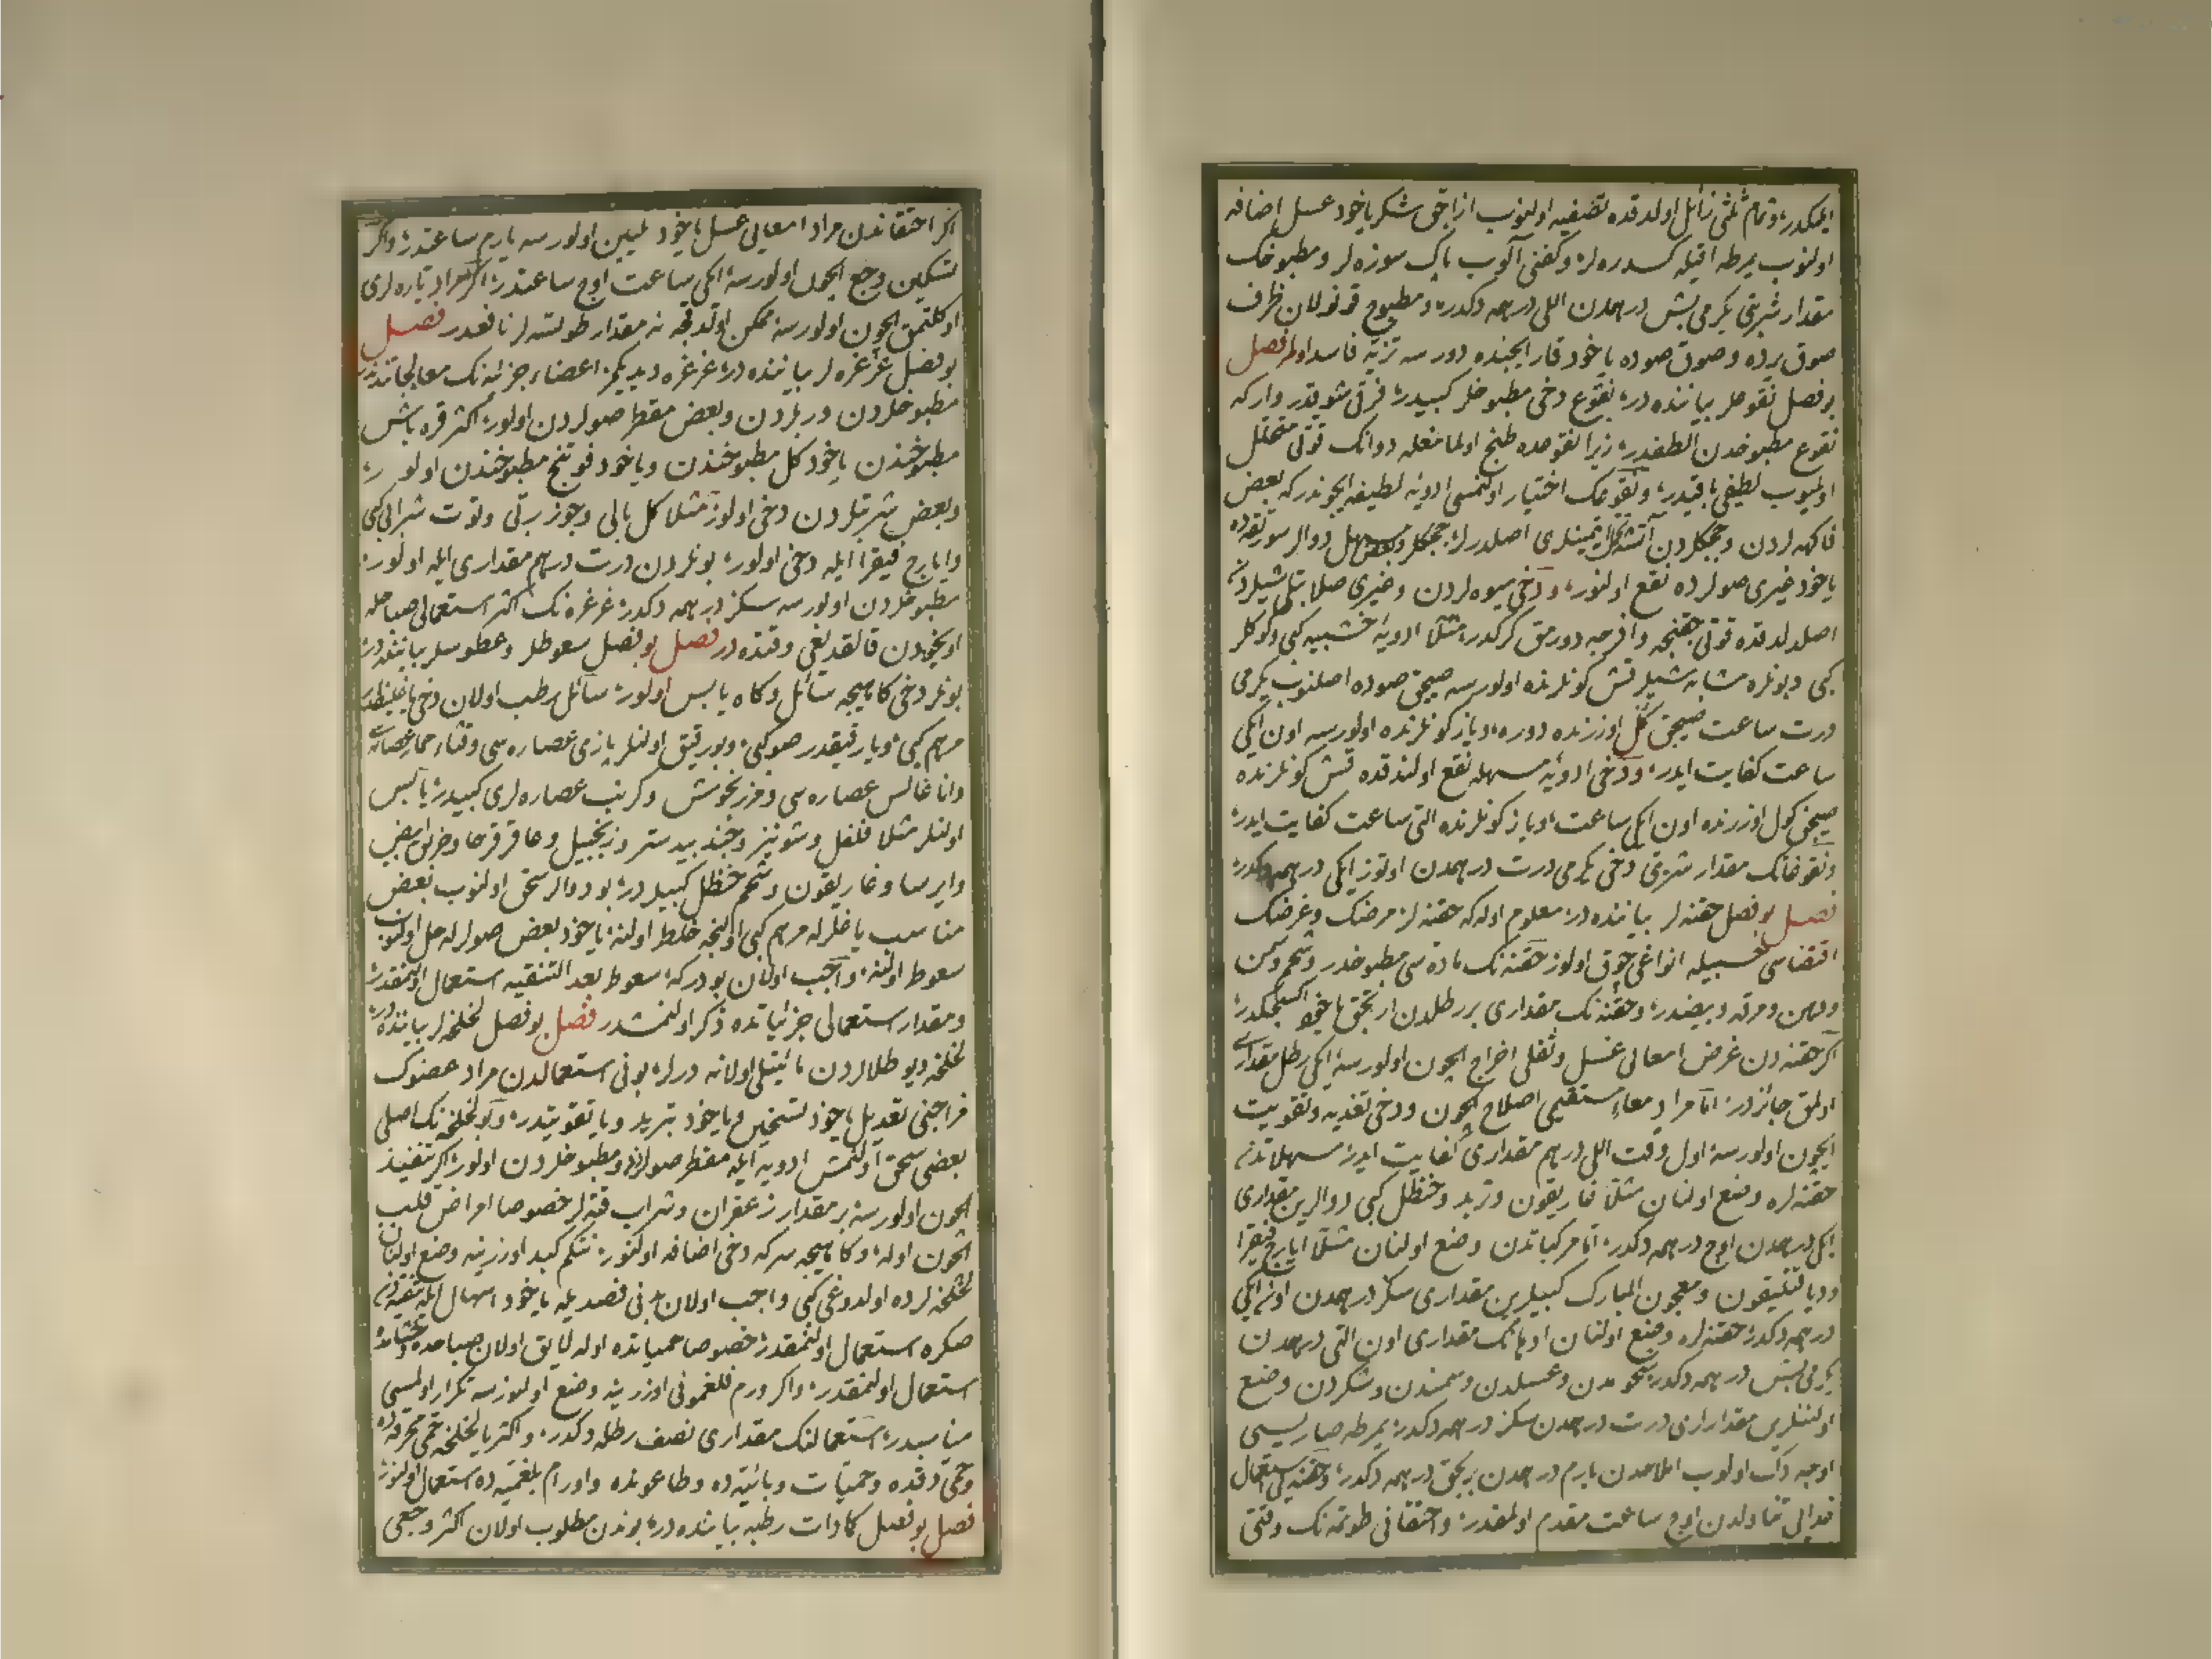 ایلمکدر، و تمام ثلثی زائل اولدقده تصفیه اولنوب ازاجق شکر یاخود عسل اضافه
اولنوب یمرطه اقیله کسدره لر و کفنی آلوب پاک سوزه لر و مطبوخک
مقدار شربتی یکرمی بش درهمدن اللی درهمه دکدر، و مطبوخ قونولان ظرف
صوق یرده و صوق صوده یاخود قار ایچنده دورسه تیزیه فاسد اولمز فصل
بو فصل نقوعلر بیاننده در، نقوع دخی مطبوخلر کبیدر، فرق شو قدر وار که
نقوع مطبوخدن الطفدر، زیرا نقوعده طبخ اولمامغله دوانک قوتی متحلل
اولمیوب لطیفی باقیدر، و نقوعک اختیار اولنمسی ادویه لطیفه ایچوندر که بعض
فاکهه لردن و چچکلردن آتشه تحمل ایتمینلری اصلدرلر، چچکلر و بعض مسهل دوالر سوزنقده
یاخود غیری صولرده نقع اولنور، و دخی میوه لردن و غیری صلابتلی شیلردن
اصلدلدقده قوتی چقنجه وافر جه دورمق کرکدر، مثلا ادویه خشبیه کبی و کوکلر
کبی و بونلره مشابه شیلر قش کونلرنده اولورسه صیجق صوده اصلنوب یکرمی
درت ساعت صیجق کل اوزرنده دوره، و یاز کونلرنده اولورسه اون ایکی
ساعت کفایت ایدر، و دخی ادویه مسهله نقع اولندقده قش کونلرنده
صیجق کول اوزرنده اون ایکی ساعت، و یاز کونلرنده التی ساعت کفایت ایدر،
و نقوعاتک مقدار شربتی دخی یکرمی درت درهمدن اوتوز ایکی درهمه دکدر،
فصل بو فصل حقنه لر بیاننده در، معلوم اوله که حقنه لر مرضک و غرضک
اقتضاسی حسبیله انواعی چوق اولور، حقنه نک ماده سی مطبوخدر و شحم و سمن
و دهن و مرقه و بیضدر، و حقنه نک مقداری بر رطلدن ارتجق یاخود اکسیجکدر،
اکر حقنه دن غرض امعایی غسل و ثفلی اخراج ایچون اولورسه ایکی رطل مقداری
اولمق جائزدر، اما مراد معاء مستقیمی اصلاح ایچون و دخی تغذیه و تقویت
ایچون اولورسه اول وقت اللی درهم مقداری کفایت ایدر، مسهلاتدن
حقنه لره وضع اولنان مثلا غاریقون و تربد و حنظل کبی دوالرین مقداری
ایکی درهمدن اوچ درهمه دکدر، اما مرکباتدن وضع اولنان مثلا ایارج فیقرا
و دیافنیقون و معجون المبارک کبیلرین مقداری سکز درهمدن اون ایکی
درهمه دکدر، حقنه لره وضع اولنان ادهانک مقداری اون التی درهمدن
یکرمی بش درهمه دکدر، شحومدن و عسلدن و سمندن و شکردن وضع
اولنانلرین مقدارلری درت درهمدن سکز درهمه دکدر، یمرطه صاریسی
اوچه دک اولوب املاحدن یارم درهمدن بر بچق درهمه دکدر، و حقنه یی استعمال
غدایی تناولدن اوچ ساعت مقدم اولمقدر، و احتقانی طوتمه نک وقتی
اکر احتقاندن مراد امعایی عسل یاخود تلیین اولورسه یارم ساعتدر، و اکر
تسکین وجع ایچون اولورسه ایکی ساعت اوچ ساعتدر، اکر مراد یاره لری
اوکلتمق ایچون اولورسه ممکن اولدقجه نه مقدار طوتسه لر نافعدر فصل
بو فصل غرغره لر بیاننده در، غرغره دیدیکمز اعضاء جزئیه نک معالجاتنده در
مطبوخلردن در بلردن و بعض مقطر صولردن اولور، اکثر قره باش
مطبوخندن یاخود کل مطبوخندن و یاخود فوتنج مطبوخندن اولور،
و بعض شربتلردن دخی اولور مثلا کل بالی و جوز ربی و توت شرابی کبی
و ایارج فیقرا ایله دخی اولور، بونلردن درت درهم مقداری ایله اولور،
مطبوخلردن اولورسه سکز درهمه دکدر، غرغره نک اکثر استعمالی صباحله
اویخودن قالقدیغی وقتده در فصل بو فصل سعوطلر و عطوسلر بیاننده در
بونلر دخی کاهیجه سائل و کاه یابس اولور، سائل رطب اولان دخی یا غلیظدر
مرهم کبی، و یا رقیقدر صو کبی، و بو رقیق اولنلر پازی عصاره سی و قثاء حمار عصاره سی
و اناغالس عصاره سی و مرزنجوش و کرنب عصاره لری کبیدر، یابس
اولنلر مثلا فلفل و شونیز و جندبیدستر و زنجبیل و عاقر قرحا و خربق ابیض
و ایرسا و غاریقون و شحم حنظل کبیلردر، بو دوالر سحق اولنوب بعض
مناسب یاغلرله مرهم کبی اولنجه خلط اولنه، یاخود بعض صولرله حل اولنوب
سعوط اولنه، و اجب اولان بودر که سعوط بعد التنقیه استعمال اولنمقدر،
و مقدار استعمالی جزئیاتده ذکر اولنمشدر فصل بو فصل لخلخه لر بیاننده در،
لخلخه دیو طلالردن مائیتلی اولانه درلر، بونی استعمالدن مراد عضوک
مزاجنی تعدیل یاخود تسخین و یاخود تبرید و یا تقویتدر، و بو لخلخه نک اصلی
بعضی سحق اولنمش ادویه ایله مقطر صولردن و مطبوخلردن اولور، اکر تنفیذ
ایچون اولورسه بر مقدار زعفران و شراب قته لر خصوصا امراض قلب
ایچون اوله، و کاهیجه سرکه دخی اضافه اولنور، نتکم کبد اوزرینه وضع اولنان
لخلخه لرده اولدوغی کبی و اجب اولان بونی فصد ایله یاخود اسهال ایله تنقیه دن
صکره استعمال اولنمقدر، خصوصا حمیاتده اوله لایق اولان صباحده و اخشامده
استعمال اولنمقدر، و اکر ورم فلغمونی اوزرینه وضع اولنورسه تکرار اولنمسی
مناسبدر، استعمالنک مقداری نصف رطله دکدر، و اکثریا لخلخه حمی محرقه ده
و حمی دقده و حمیات وبائیه ده و طاعونده و اورام بلغمیه ده استعمال اولنور،
فصل بو فصل کمادات رطبه بیاننده در، بوندن مطلوب اولان اکثر وجعی